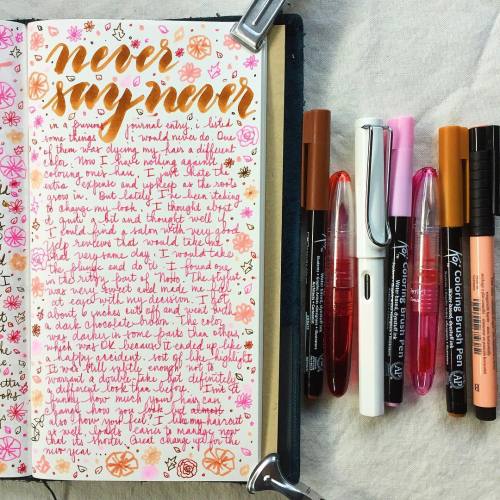 never
say never
in a previous journal entry, i listed
some things i would never do. One
of them was dyeing my hair a different
color. Now I have nothing against
coloring one's hair, I just hate the
extra expense and upkeep as the roots
grow in. But lately I've been itching
to change my look. I thought about it
quite a bit and thought well if
I could find a salon with very good
Yelp reviews that would take me
that very same day, I would take
the plunge and do it. I found one
in the ritzy part of Novo. The stylist
was very sweet and made me feel
at ease with my decision. I got
about 6 inches cut off and went with
a dark chocolate brown. The color
was darker in some parts than others
which was ok because it ended up like
a happy accident, sort of like highlights
It was still subtle enough not to
warrant a double take but definitely
a different look than before. Isn't it
funny how much your hair can
change how you look but almost
also how you feel. I like my haircut
as well, loads easier to manage now
that it's shorter. Great change up for the
new year...
Koi Coloring Brush Pen
Koi Coloring Brush Pen
AP